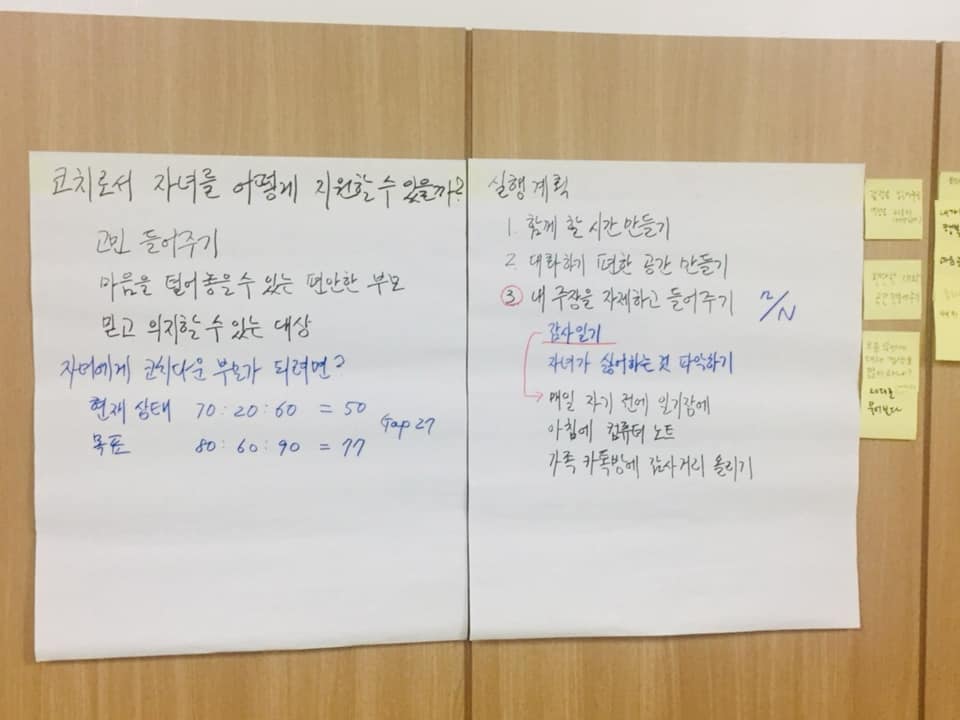 코치로서 자녀를 어떻게 지원할 수 있을까?
고민 들어주기
마음을 털어놓을 수 있는 편안한 부모
믿고 의지할 수 있는 대상
자녀에게 코치다운 부모가 되려면?
현재 상태 70:20:60 = 50
목표 80:60:90 = 77
Gap 27
실행계획
1. 함께 할 시간 만들기
2. 대화하기 편한 공간 만들기
③ 내 주장을 자제하고 들어주기
n/N
감사일기
자녀가 싫어하는 것 파악하기
매일 자기 전에 일기장에
아침에 컴퓨터 노트
가족 카톡방에 감사거리 올리기